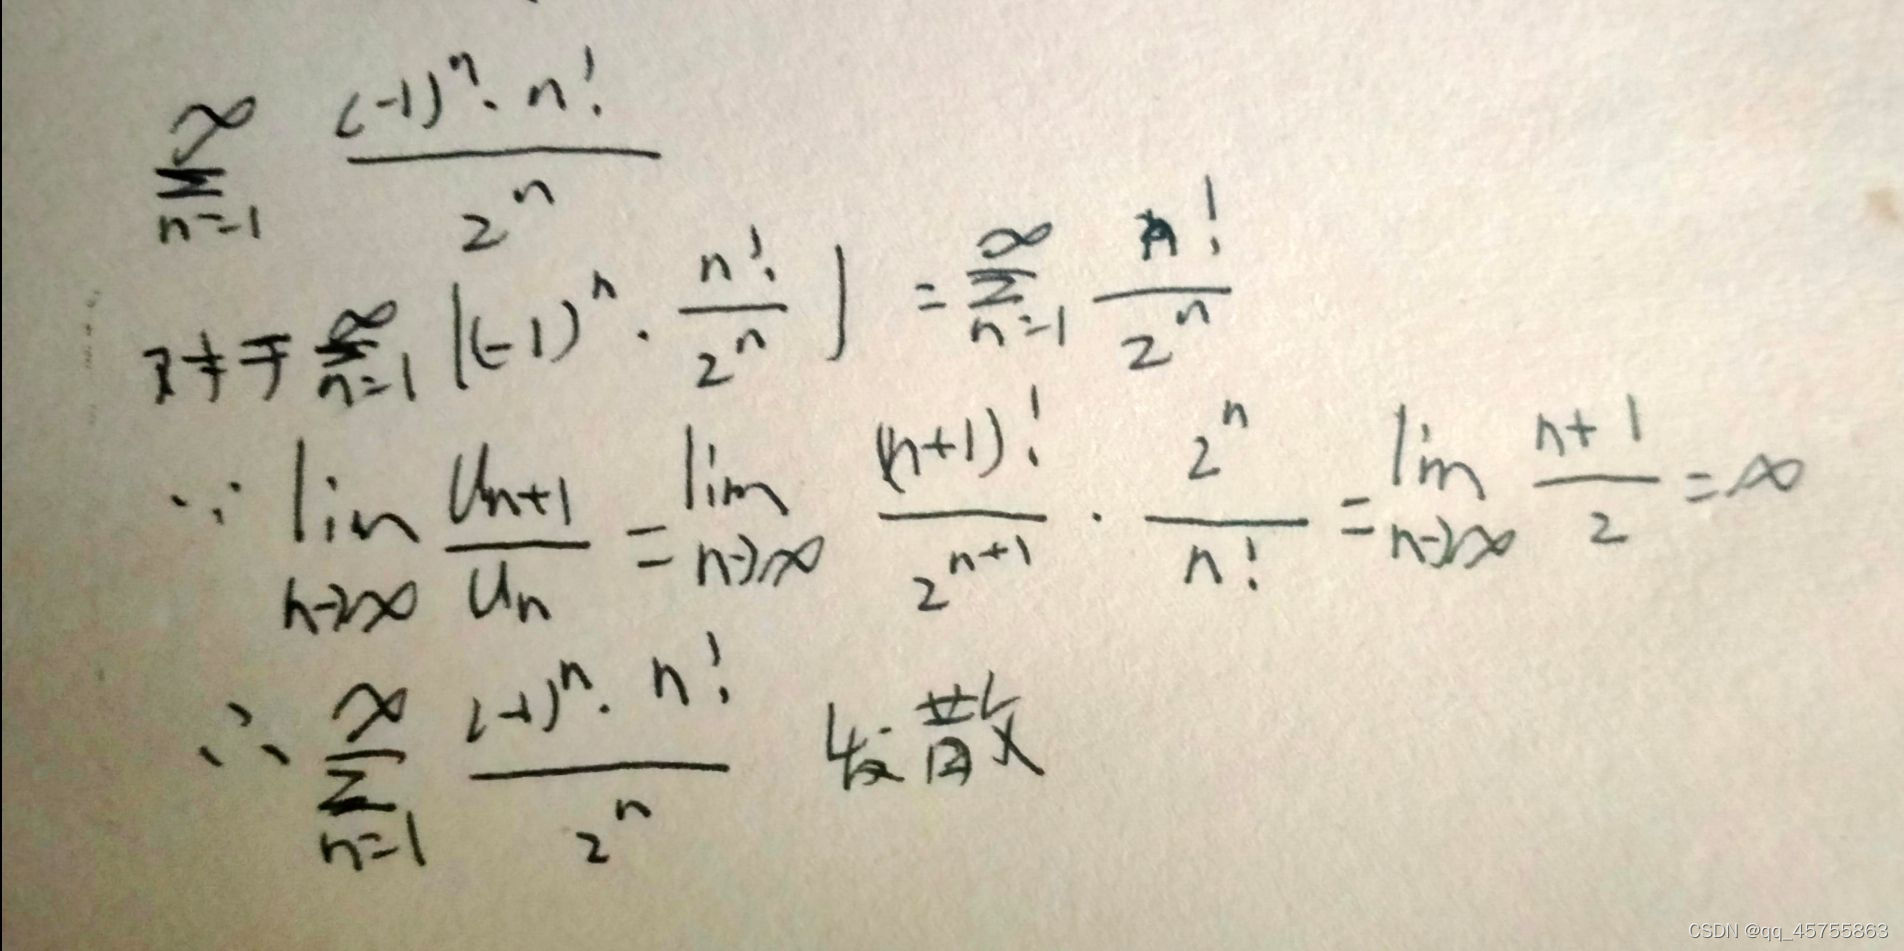 ∑_{n=1}^{∞} \frac{(-1)^n · n!}{2^n}
对于 ∑_{n=1}^{∞} |(-1)^n · \frac{n!}{2^n}| = ∑_{n=1}^{∞} \frac{n!}{2^n}
∵ lim_{n→∞} \frac{U_{n+1}}{U_n} = lim_{n→∞} \frac{(n+1)!}{2^{n+1}} · \frac{2^n}{n!} = lim_{n→∞} \frac{n+1}{2} = ∞
∴ ∑_{n=1}^{∞} \frac{(-1)^n · n!}{2^n} 发散
CSDN @qq_45755863